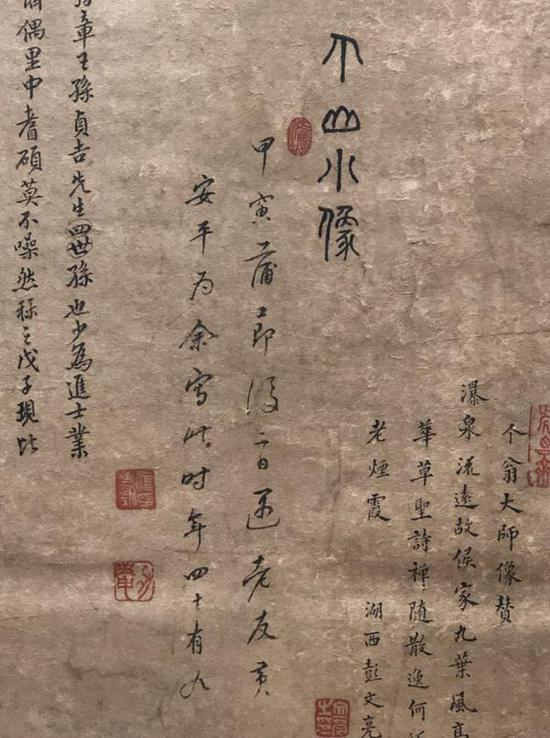 个翁大師像赞
瀑泉流遠故侯家九葉風高
華草聖詩禪随散逸何
老煙霞 湖西彭文亮
个山小像
甲寅蒲節後二日遇老友黄
安平为余寫此时年四十有九
章王孫貞吉先生四世孫也少為進士業
偶里中耆碩莫不噪然称之戊子現比